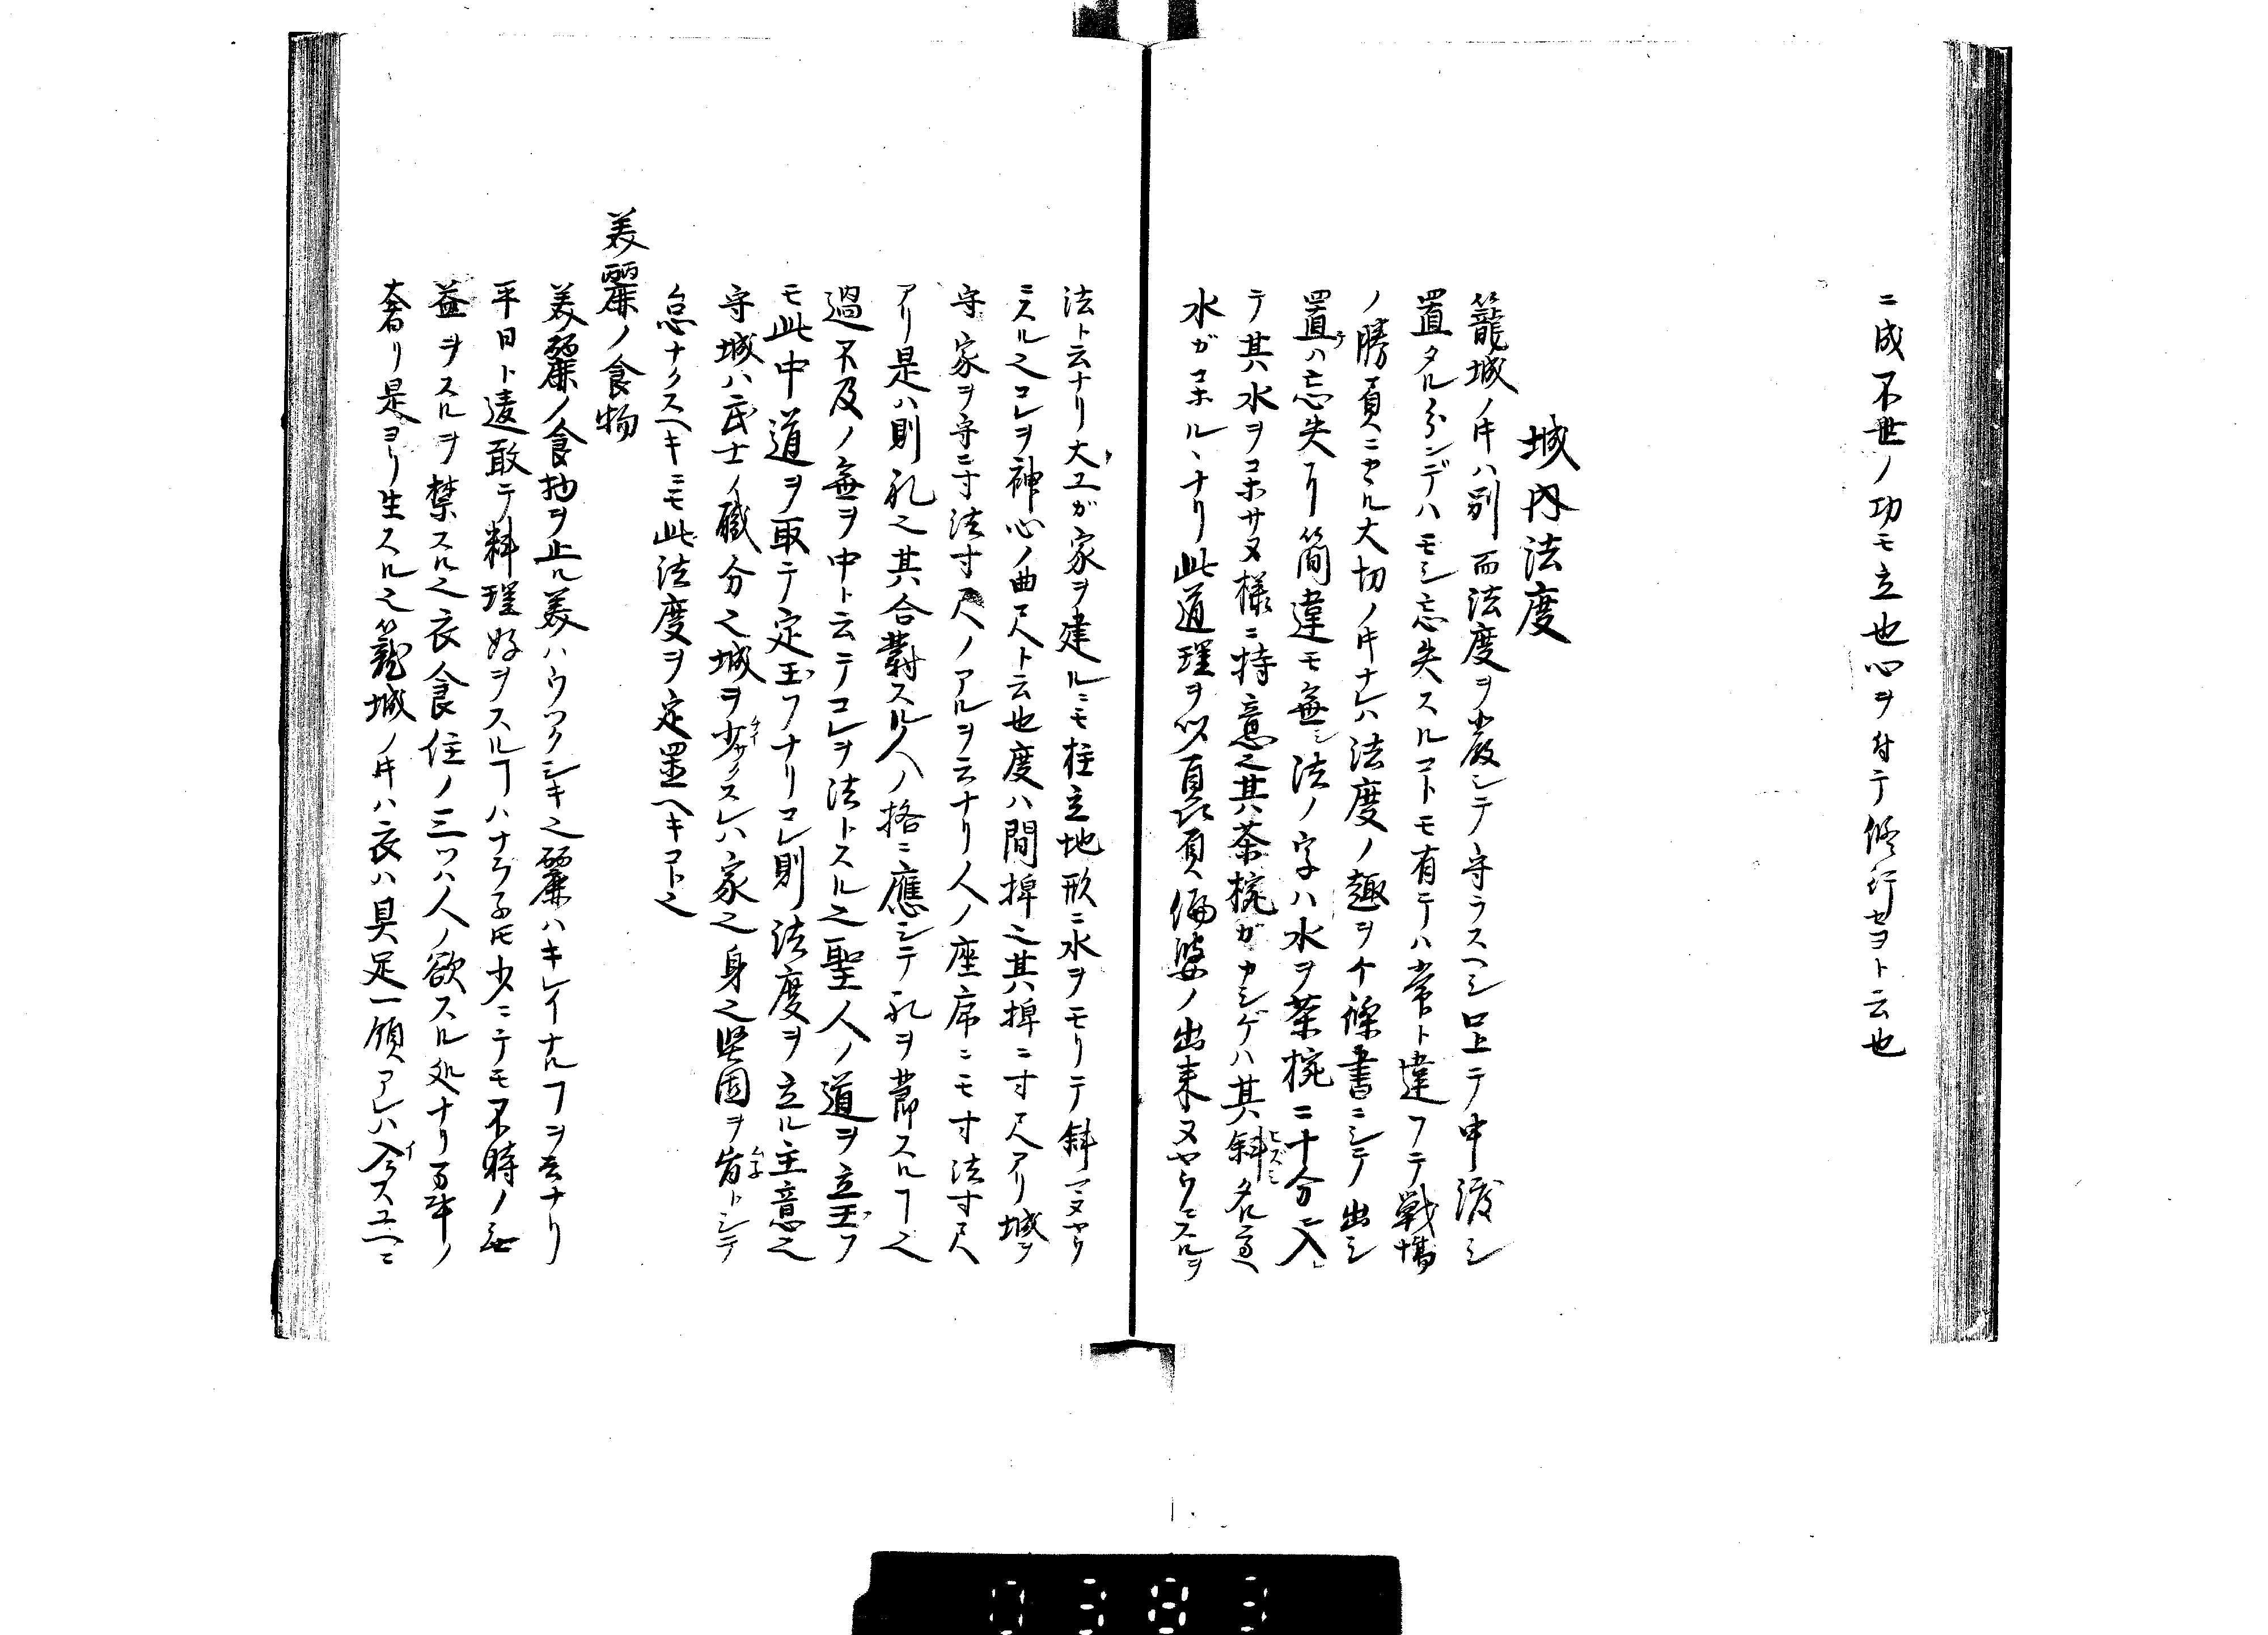 ニ成不世ノ功モ立也心ヲ付テ修行セヨト云也
城内法度
籠城ノ㆐ハ別而法度ヲ嚴シテ守ラスヘシ口上テ申渡シ
置タル分ンデハモシ忘失スルコトモ有テハ常ト違フテ戰場
ノ勝負ニカヽル大切ノ㆐ナレハ法度ノ趣ヲ个條書ニシテ出シ
置ケハ忘失ナリ簡違モ無シ法ノ字ハ水ヲ茶椀ニ十分ニ入
テ其水ヲコホサヌ様ニ持意也其茶椀ガカシゲハ其斜ヒズミ
水ガコホルヽナリ此道理ヲ以贔負偏婆ノ出来ヌヤウニスルヲ
法ト云ナリ大工ガ家ヲ建ルニモ柱立地形ニ水ヲモリテ斜ヌヤウ
ニスル也コレヲ神心ノ曲尺ト云也度ハ間掉也其掉ニ寸尺アリ城ヲ
守家ヲ守ニ寸法寸尺ノアルヲ云ナリ人ノ座席ニモ寸法寸尺
アリ是ハ則礼也其合對スル人ノ格ニ應シテ礼ヲ節スルヿ也
過不及ノ無ヲ中ト云テコレヲ法トスル也聖人ノ道ヲ立玉フ
モ此中道ヲ取テ定玉フナリコレ則法度ヲ立ル主意也
守城ハ武士ノ職分也城ヲ少サクスレハ家也身也堅固ヲ旨トシテ
怠ナクスヘキニモ此法度ヲ定置ヘキコト也
美麗ノ食物
美麗ノ食物ヲ止ル美ハウツクシキ也麗ハキレイナルヿヲ云ナリ
平日ト違敢テ料理好ヲスルヿハナラ子𪜈少ニテモ不時ノ無
益ヲスルヲ禁スル也衣食住ノ三ツハ人ノ欲スル処ナリ万事ノ
奢リ是ヨリ生スル也籠城ノ㆐ハ衣ハ具足一領アレハ